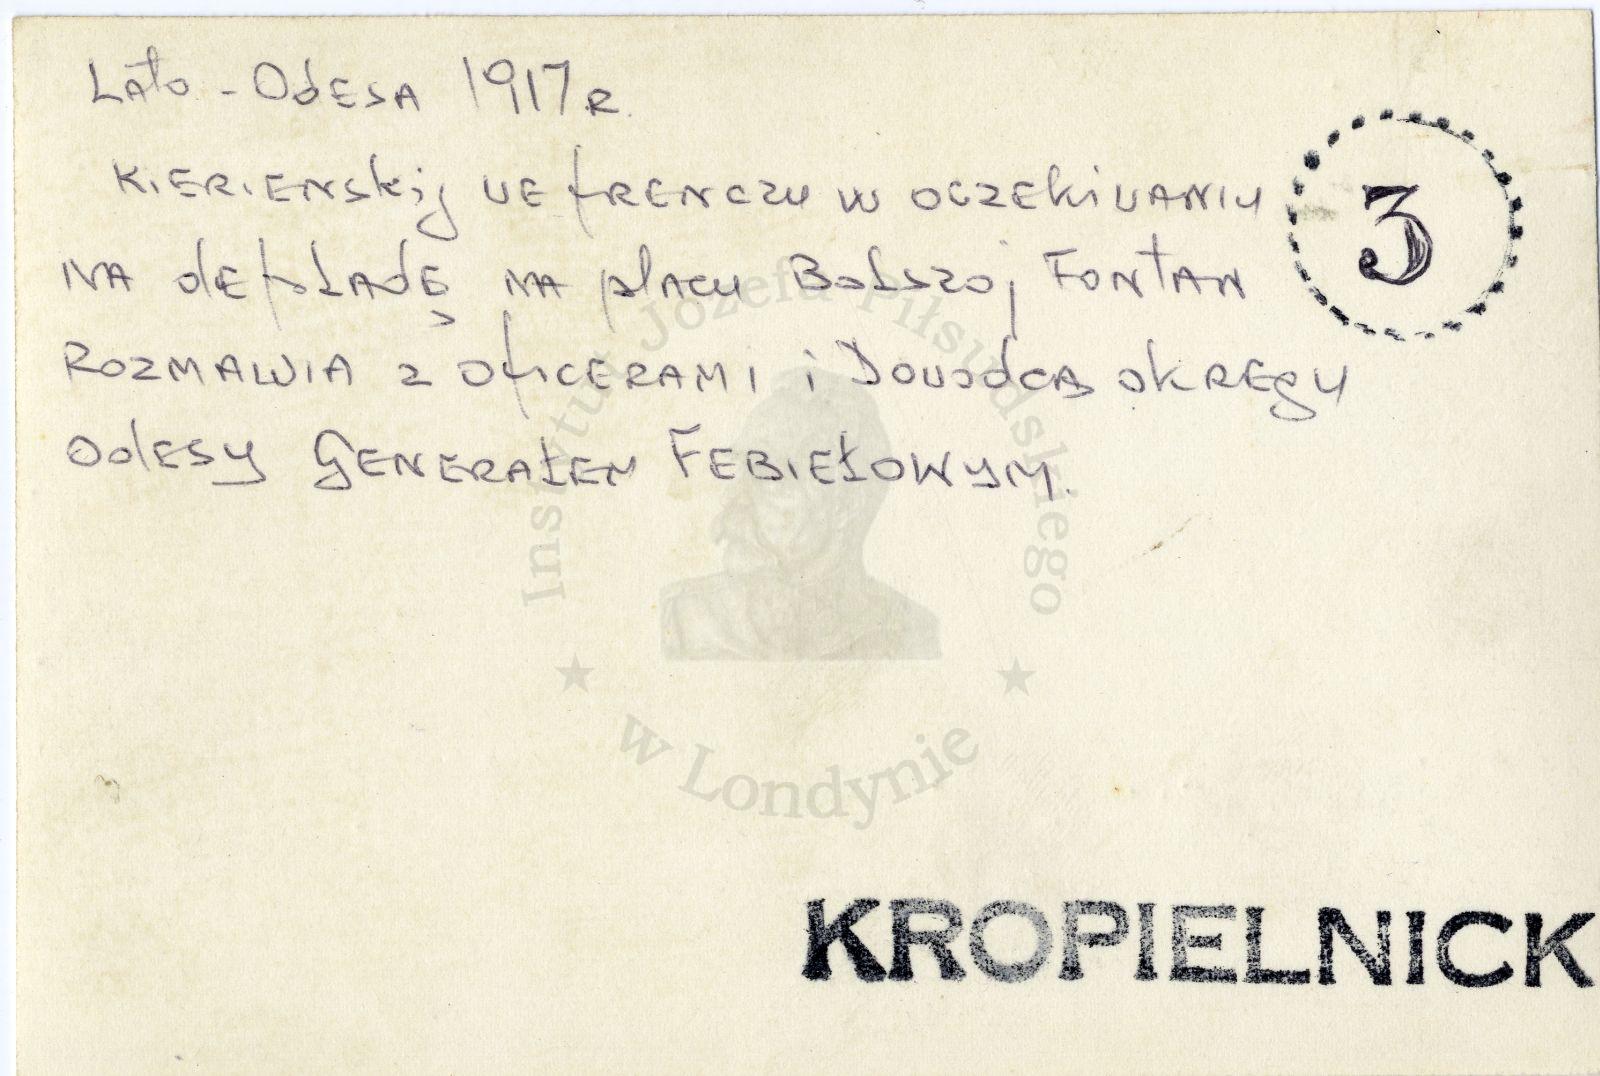 Lato - Odesa 1917 R.
Kierienskij we frenczu w oczekiwaniu
na defiladę na placu Bolszoj Fontan
Rozmawia z oficerami i Dowódcą okręgu
Odesy Generałem Febiełowym.
3
Instytut Józefa Piłsudskiego
w Londynie
KROPIELNICK